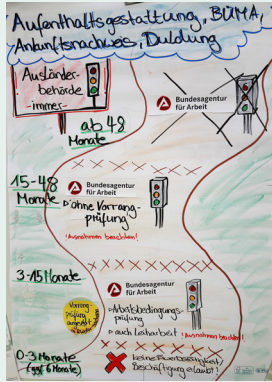 Aufenthaltsgestattung, BÜMA,
Ankunftsnachweis, Duldung
Ausländer-
behörde
-immer-
Bundesagentur
für Arbeit
ab 48
Monate
15-48
Monate
Bundesagentur
für Arbeit
ohne Vorrang-
prüfung
!Ausnahmen beachten!
3-15 Monate
Bundesagentur
für Arbeit
Vorrang-
Prüfung
-Arbeitsbedingungs-
prüfung
-auch Leiharbeit
!Ausnahmen beachten!
0-3 Monate
(ggf. 6 Monate)
keine Erwerbstätigkeit/
Beschäftigung erlaubt!